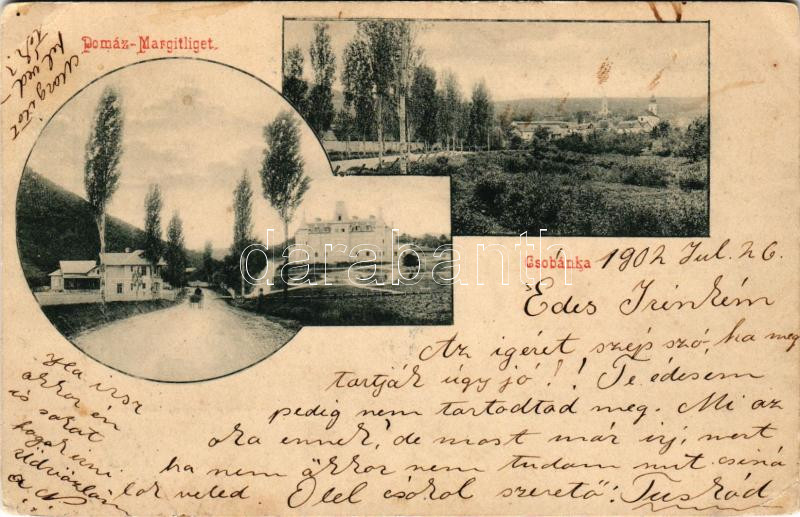 Pomáz-Margitliget.
Csobánka
1902 Jul. 26.
Édes Irinkém
Az igéret szép szó, ha meg
tartják úgy jó!! Te édesem
pedig nem tartodtad meg. Mi az
oka ennek, de most már irj, mert
ha nem akkor nem tudom mit csiná
lok veled Ölel csókol szerető: Tuskód
Ha irsz
akkor én
is sokat
fogok irni
Üdvözlöm
darabanth.com